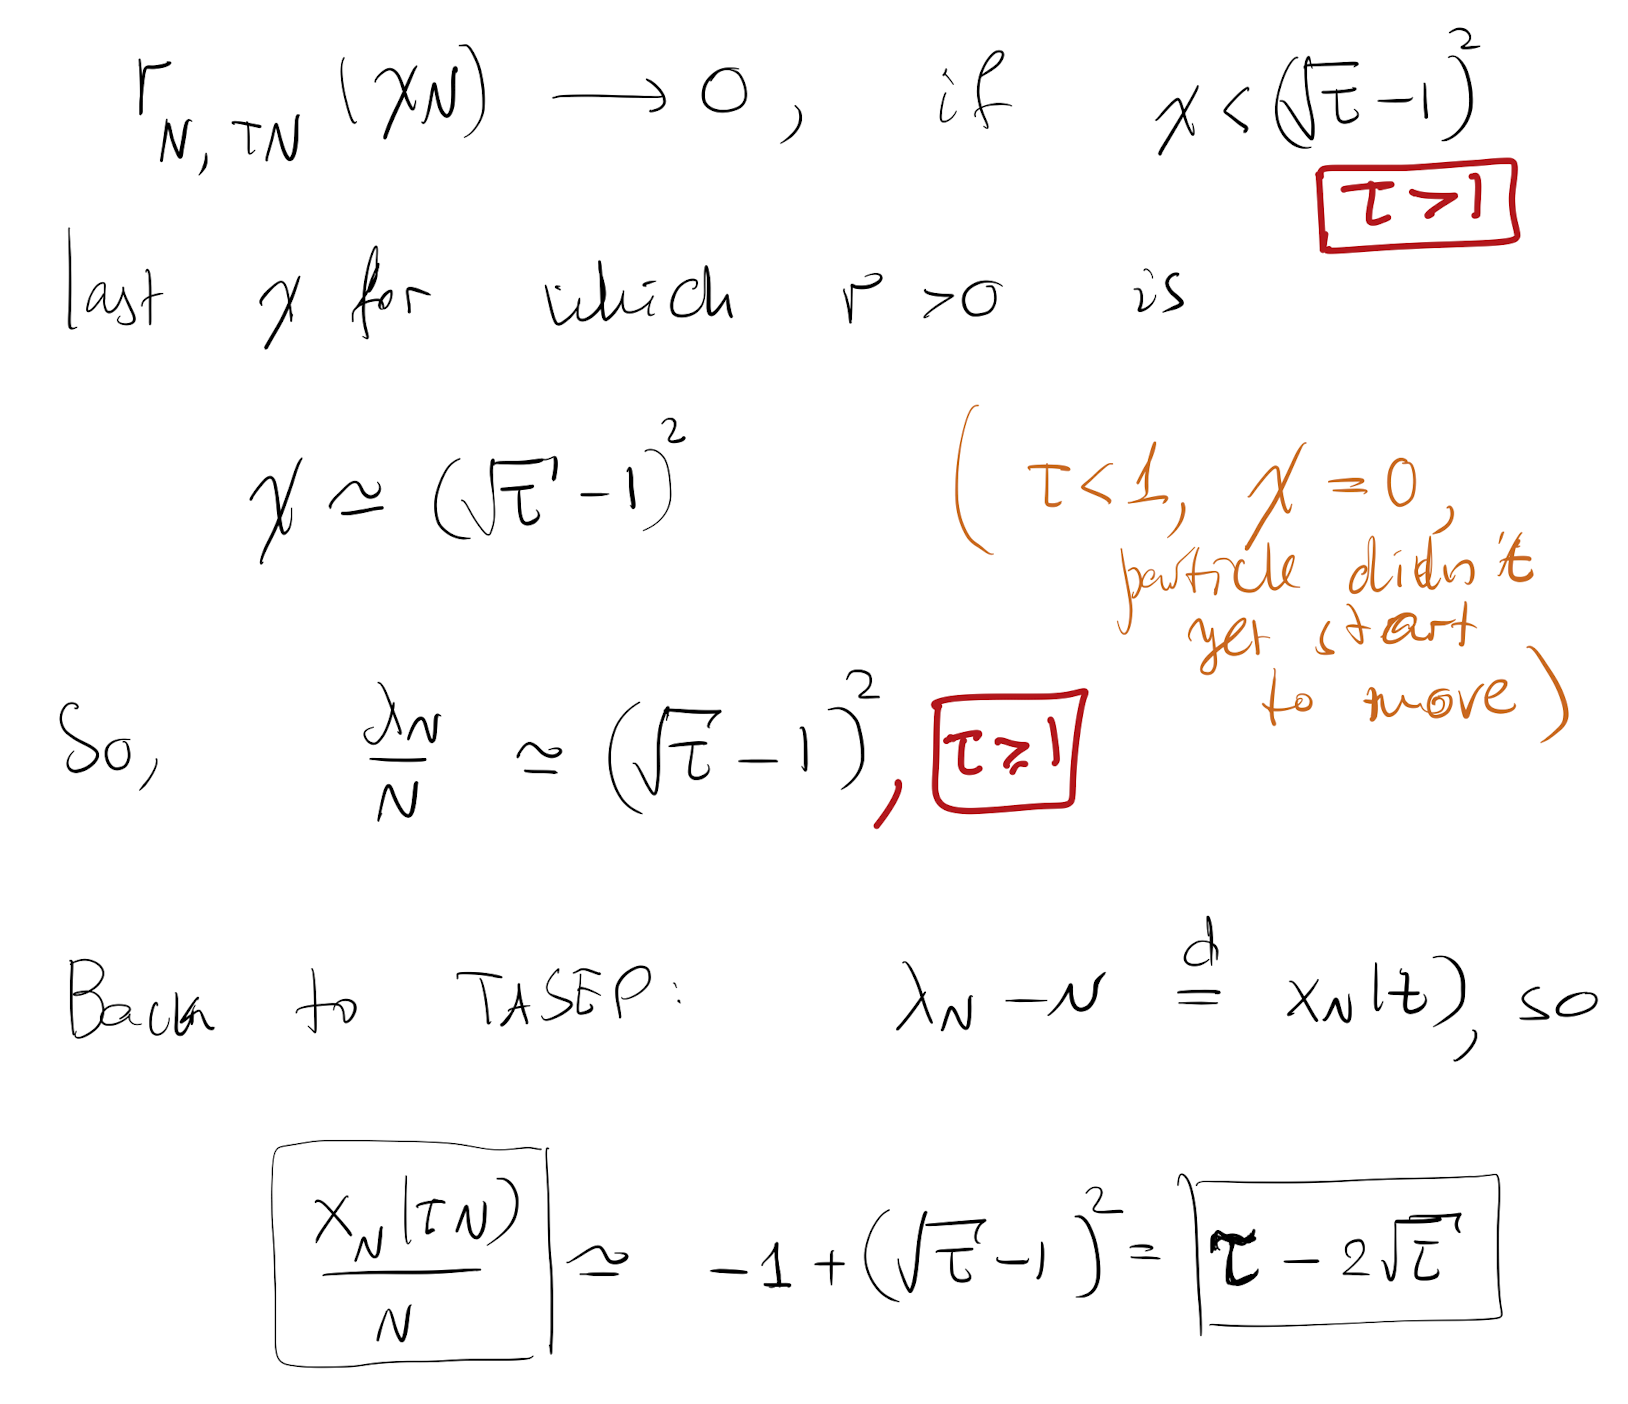 r_{N, τN} (χN) → 0, if χ < (√τ − 1)²
τ > 1
last χ for which r > 0 is
χ ≃ (√τ − 1)²
( τ < 1, χ = 0,
particle didn't
yet start
to move )
So, λ_N / N ≃ (√τ − 1)², τ ⩾ 1
Back to TASEP: λ_N − N =^d x_N(t), so
x_N(τN) / N ≃ −1 + (√τ − 1)² = τ − 2√τ